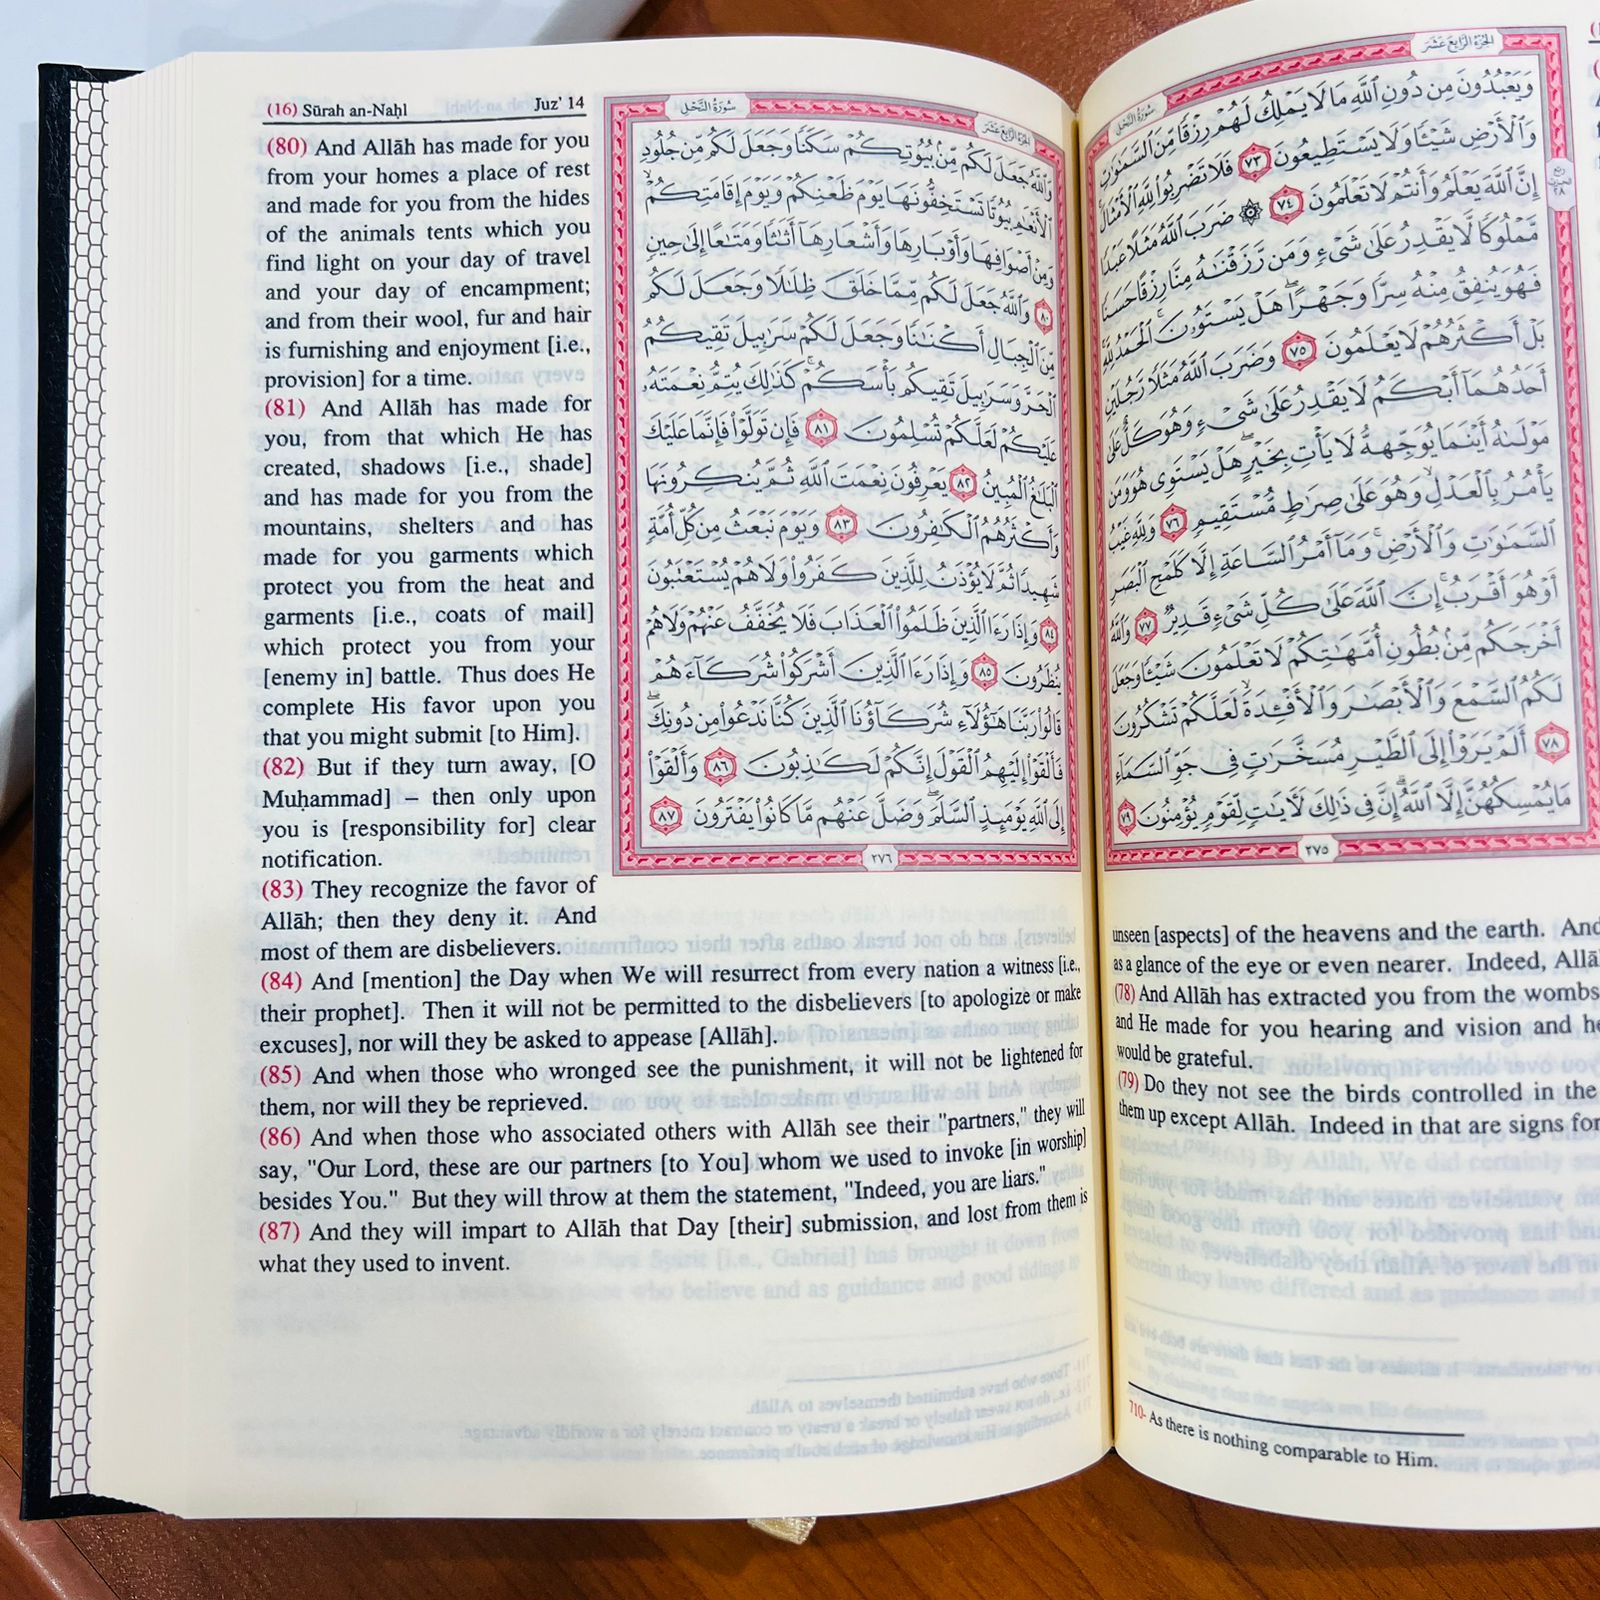 (16) Sūrah an-Naḥl
Juz' 14
(80) And Allāh has made for you
from your homes a place of rest
and made for you from the hides
of the animals tents which you
find light on your day of travel
and your day of encampment;
and from their wool, fur and hair
is furnishing and enjoyment [i.e.,
provision] for a time.
(81) And Allāh has made for
you, from that which He has
created, shadows [i.e., shade]
and has made for you from the
mountains, shelters and has
made for you garments which
protect you from the heat and
garments [i.e., coats of mail]
which protect you from your
[enemy in] battle. Thus does He
complete His favor upon you
that you might submit [to Him].
(82) But if they turn away, [O
Muḥammad] – then only upon
you is [responsibility for] clear
notification.
(83) They recognize the favor of
Allāh; then they deny it. And
most of them are disbelievers.
(84) And [mention] the Day when We will resurrect from every nation a witness [i.e.,
their prophet]. Then it will not be permitted to the disbelievers [to apologize or make
excuses], nor will they be asked to appease [Allāh].
(85) And when those who wronged see the punishment, it will not be lightened for
them, nor will they be reprieved.
(86) And when those who associated others with Allāh see their "partners," they will
say, "Our Lord, these are our partners [to You] whom we used to invoke [in worship]
besides You." But they will throw at them the statement, "Indeed, you are liars."
(87) And they will impart to Allāh that Day [their] submission, and lost from them is
what they used to invent.
سُورَةُ النَّحْلِ
الجُزْءُ الرَّابِعَ عَشَرَ
وَٱللَّهُ جَعَلَ لَكُم مِّنۢ بُيُوتِكُمْ سَكَنًا وَجَعَلَ لَكُم مِّن جُلُودِ
ٱلْأَنْعَٰمِ بُيُوتًا تَسْتَخِفُّونَهَا يَوْمَ ظَعْنِكُمْ وَيَوْمَ إِقَامَتِكُمْ ۙ
وَمِنْ أَصْوَافِهَا وَأَوْبَارِهَا وَأَشْعَارِهَآ أَثَٰثًا وَمَتَٰعًا إِلَىٰ حِينٍ
٨٠ وَٱللَّهُ جَعَلَ لَكُم مِّمَّا خَلَقَ ظِلَٰلًا وَجَعَلَ لَكُم
مِّنَ ٱلْجِبَالِ أَكْنَٰنًا وَجَعَلَ لَكُمْ سَرَٰبِيلَ تَقِيكُمُ
ٱلْحَرَّ وَسَرَٰبِيلَ تَقِيكُم بَأْسَكُمْ ۚ كَذَٰلِكَ يُتِمُّ نِعْمَتَهُۥ
عَلَيْكُمْ لَعَلَّكُمْ تُسْلِمُونَ ٨١ فَإِن تَوَلَّوْا۟ فَإِنَّمَا عَلَيْكَ
ٱلْبَلَٰغُ ٱلْمُبِينُ ٨٢ يَعْرِفُونَ نِعْمَتَ ٱللَّهِ ثُمَّ يُنكِرُونَهَا
وَأَكْثَرُهُمُ ٱلْكَٰفِرُونَ ٨٣ وَيَوْمَ نَبْعَثُ مِن كُلِّ أُمَّةٍ
شَهِيدًا ثُمَّ لَا يُؤْذَنُ لِلَّذِينَ كَفَرُوا۟ وَلَا هُمْ يُسْتَعْتَبُونَ
٨٤ وَإِذَا رَءَا ٱلَّذِينَ ظَلَمُوا۟ ٱلْعَذَابَ فَلَا يُخَفَّفُ عَنْهُمْ وَلَا هُمْ
يُنظَرُونَ ٨٥ وَإِذَا رَءَا ٱلَّذِينَ أَشْرَكُوا۟ شُرَكَآءَهُمْ
قَالُوا۟ رَبَّنَا هَٰٓؤُلَآءِ شُرَكَآؤُنَا ٱلَّذِينَ كُنَّا نَدْعُوا۟ مِن دُونِكَ ۖ
فَأَلْقَوْا۟ إِلَيْهِمُ ٱلْقَوْلَ إِنَّكُمْ لَكَٰذِبُونَ ٨٦ وَأَلْقَوْا۟
إِلَى ٱللَّهِ يَوْمَئِذٍ ٱلسَّلَمَ ۖ وَضَلَّ عَنْهُم مَّا كَانُوا۟ يَفْتَرُونَ ٨٧
٢٧٦
سُورَةُ النَّحْلِ
الجُزْءُ الرَّابِعَ عَشَرَ
وَيَعْبُدُونَ مِن دُونِ ٱللَّهِ مَا لَا يَمْلِكُ لَهُمْ رِزْقًا مِّنَ ٱلسَّمَٰوَٰتِ
وَٱلْأَرْضِ شَيْـًٔا وَلَا يَسْتَطِيعُونَ ٧٣ فَلَا تَضْرِبُوا۟ لِلَّهِ ٱلْأَمْثَالَ ۚ
إِنَّ ٱللَّهَ يَعْلَمُ وَأَنتُمْ لَا تَعْلَمُونَ ٧٤ ۞ ضَرَبَ ٱللَّهُ مَثَلًا عَبْدًا
مَّمْلُوكًا لَّا يَقْدِرُ عَلَىٰ شَىْءٍ وَمَن رَّزَقْنَٰهُ مِنَّا رِزْقًا حَسَنًا
فَهُوَ يُنفِقُ مِنْهُ سِرًّا وَجَهْرًا ۖ هَلْ يَسْتَوُۥنَ ۚ ٱلْحَمْدُ لِلَّهِ ۚ
بَلْ أَكْثَرُهُمْ لَا يَعْلَمُونَ ٧٥ وَضَرَبَ ٱللَّهُ مَثَلًا رَّجُلَيْنِ
أَحَدُهُمَآ أَبْكَمُ لَا يَقْدِرُ عَلَىٰ شَىْءٍ وَهُوَ كَلٌّ عَلَىٰ
مَوْلَىٰهُ أَيْنَمَا يُوَجِّههُّ لَا يَأْتِ بِخَيْرٍ ۖ هَلْ يَسْتَوِى هُوَ وَمَن
يَأْمُرُ بِٱلْعَدْلِ ۙ وَهُوَ عَلَىٰ صِرَٰطٍ مُّسْتَقِيمٍ ٧٦ وَلِلَّهِ غَيْبُ
ٱلسَّمَٰوَٰتِ وَٱلْأَرْضِ ۚ وَمَآ أَمْرُ ٱلسَّاعَةِ إِلَّا كَلَمْحِ ٱلْبَصَرِ
أَوْ هُوَ أَقْرَبُ ۚ إِنَّ ٱللَّهَ عَلَىٰ كُلِّ شَىْءٍ قَدِيرٌ ٧٧ وَٱللَّهُ
أَخْرَجَكُم مِّنۢ بُطُونِ أُمَّهَٰتِكُمْ لَا تَعْلَمُونَ شَيْـًٔا وَجَعَلَ
لَكُمُ ٱلسَّمْعَ وَٱلْأَبْصَٰرَ وَٱلْأَفْـِٔدَةَ ۙ لَعَلَّكُمْ تَشْكُرُونَ
٧٨ أَلَمْ يَرَوْا۟ إِلَى ٱلطَّيْرِ مُسَخَّرَٰتٍ فِى جَوِّ ٱلسَّمَآءِ
مَا يُمْسِكُهُنَّ إِلَّا ٱللَّهُ ۗ إِنَّ فِى ذَٰلِكَ لَءَايَٰتٍ لِّقَوْمٍ يُؤْمِنُونَ ٧٩
٢٧٥
unseen [aspects] of the heavens and the earth. And
as a glance of the eye or even nearer. Indeed, Allā
(78) And Allāh has extracted you from the wombs
and He made for you hearing and vision and he
would be grateful.
(79) Do they not see the birds controlled in the
them up except Allāh. Indeed in that are signs for
710- As there is nothing comparable to Him.